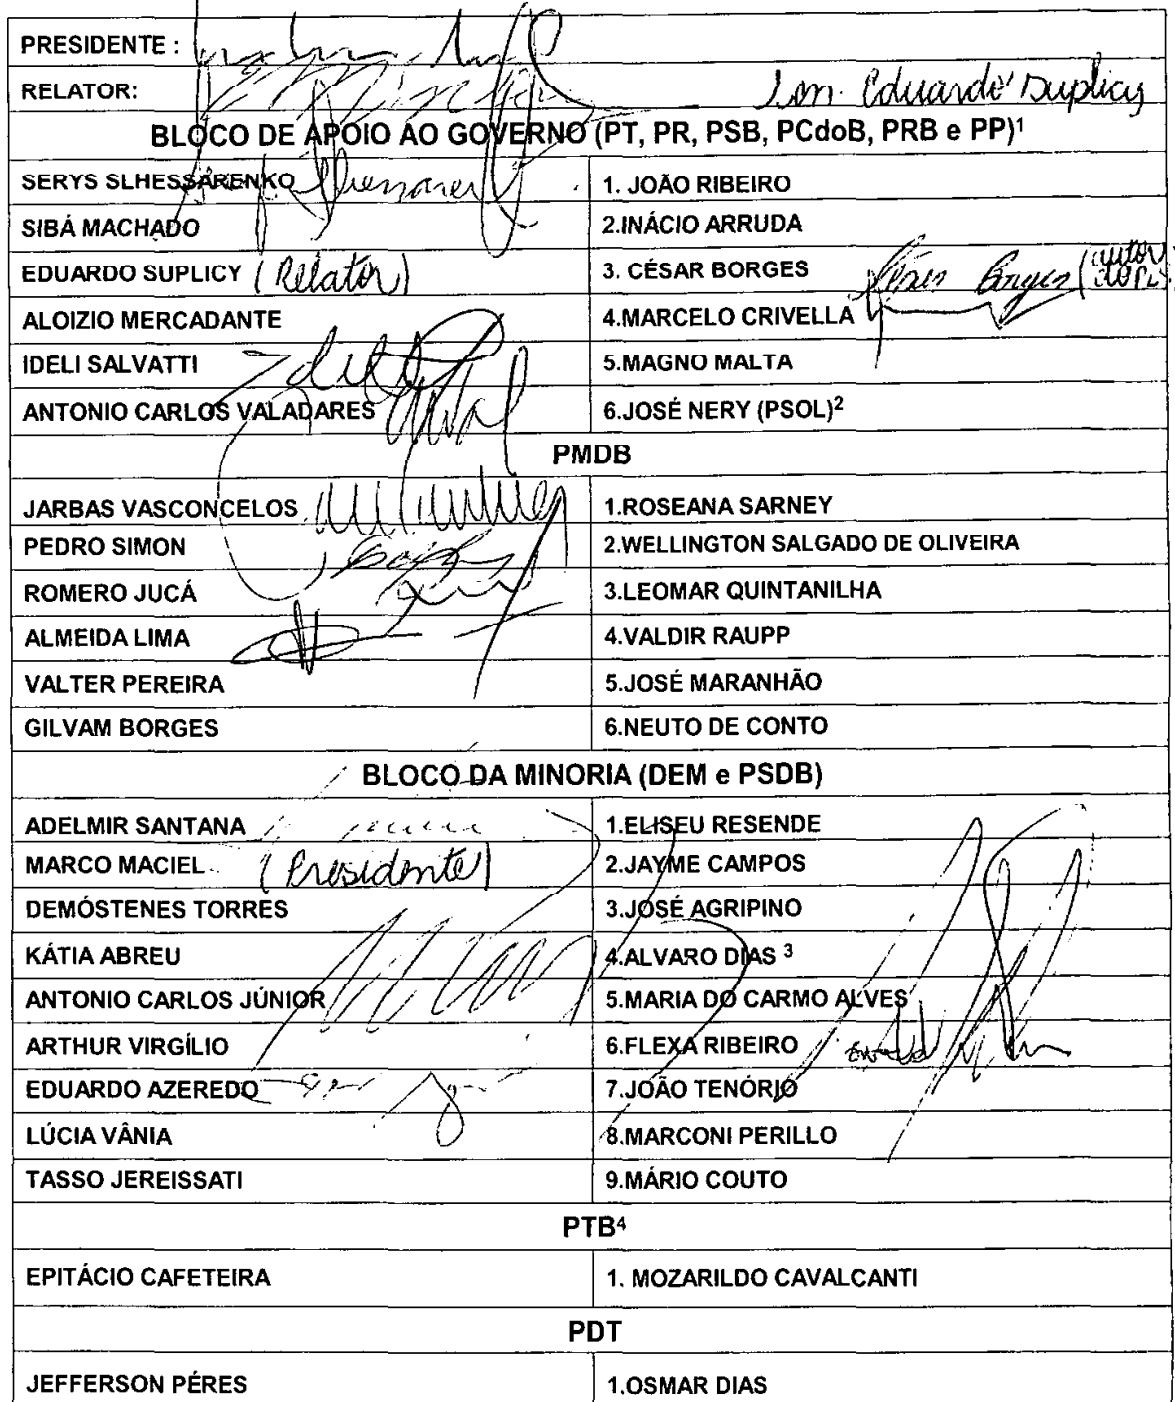 PRESIDENTE :
RELATOR: Sen. Eduardo Suplicy
BLOCO DE APOIO AO GOVERNO (PT, PR, PSB, PCdoB, PRB e PP)¹
SERYS SLHESSARENKO 1. JOÃO RIBEIRO
SIBÁ MACHADO 2.INÁCIO ARRUDA
EDUARDO SUPLICY (Relator) 3. CÉSAR BORGES César Borges (autor do PLS)
ALOIZIO MERCADANTE 4.MARCELO CRIVELLA
IDELI SALVATTI 5.MAGNO MALTA
ANTONIO CARLOS VALADARES 6.JOSÉ NERY (PSOL)²
PMDB
JARBAS VASCONCELOS 1.ROSEANA SARNEY
PEDRO SIMON 2.WELLINGTON SALGADO DE OLIVEIRA
ROMERO JUCÁ 3.LEOMAR QUINTANILHA
ALMEIDA LIMA 4.VALDIR RAUPP
VALTER PEREIRA 5.JOSÉ MARANHÃO
GILVAM BORGES 6.NEUTO DE CONTO
BLOCO DA MINORIA (DEM e PSDB)
ADELMIR SANTANA 1.ELISEU RESENDE
MARCO MACIEL (Presidente) 2.JAYME CAMPOS
DEMÓSTENES TORRES 3.JOSÉ AGRIPINO
KÁTIA ABREU 4.ALVARO DIAS ³
ANTONIO CARLOS JÚNIOR 5.MARIA DO CARMO ALVES
ARTHUR VIRGÍLIO 6.FLEXA RIBEIRO
EDUARDO AZEREDO 7.JOÃO TENÓRIO
LÚCIA VÂNIA 8.MARCONI PERILLO
TASSO JEREISSATI 9.MÁRIO COUTO
PTB⁴
EPITÁCIO CAFETEIRA 1. MOZARILDO CAVALCANTI
PDT
JEFFERSON PÉRES 1.OSMAR DIAS